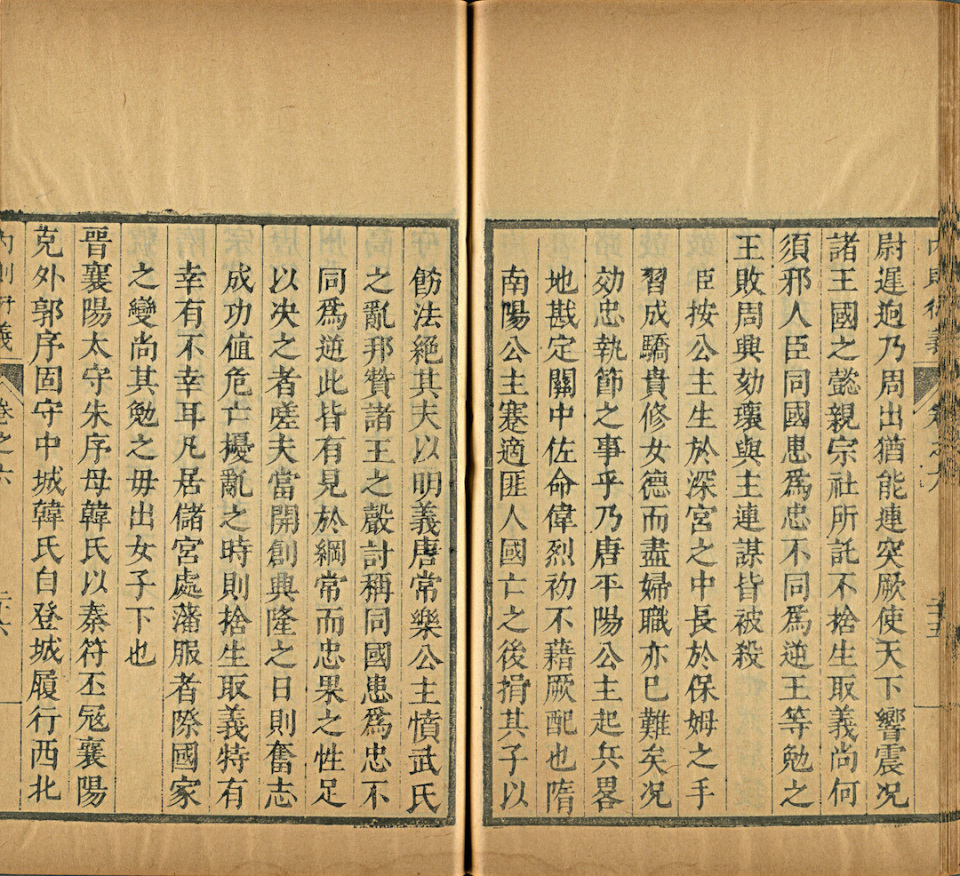 內則衍義 卷之六 二十五
尉遲迥乃周出猶能連突厥使天下響震况
諸王國之懿親宗社所託不捨生取義尚何
須邪人臣同國患爲忠不同爲逆王等勉之
王敗周興劾瓌與主連謀皆被殺
臣按公主生於深宮之中長於保姆之手
習成驕貴修女德而盡婦職亦已難矣况
効忠執節之事乎乃唐平陽公主起兵畧
地戡定關中佐命偉烈初不藉厥配也隋
南陽公主蹇適匪人國亡之後捐其子以
飭法絕其夫以明義唐常樂公主憤武氏
之亂邦贊諸王之討稱同國患爲忠不
同爲逆此皆有見於綱常而忠果之性足
以决之者嗟夫當開創典隆之日則奮志
成功值危亡擾亂之時則捨生取義特有
幸有不幸耳凡居儲宮處藩服者際國家
之變尚其勉之毋出女子下也
晉襄陽太守朱序母韓氏以秦符丕冦襄陽
克外郭序固守中城韓氏自登城履行西北
內則衍義 卷之六 二十六